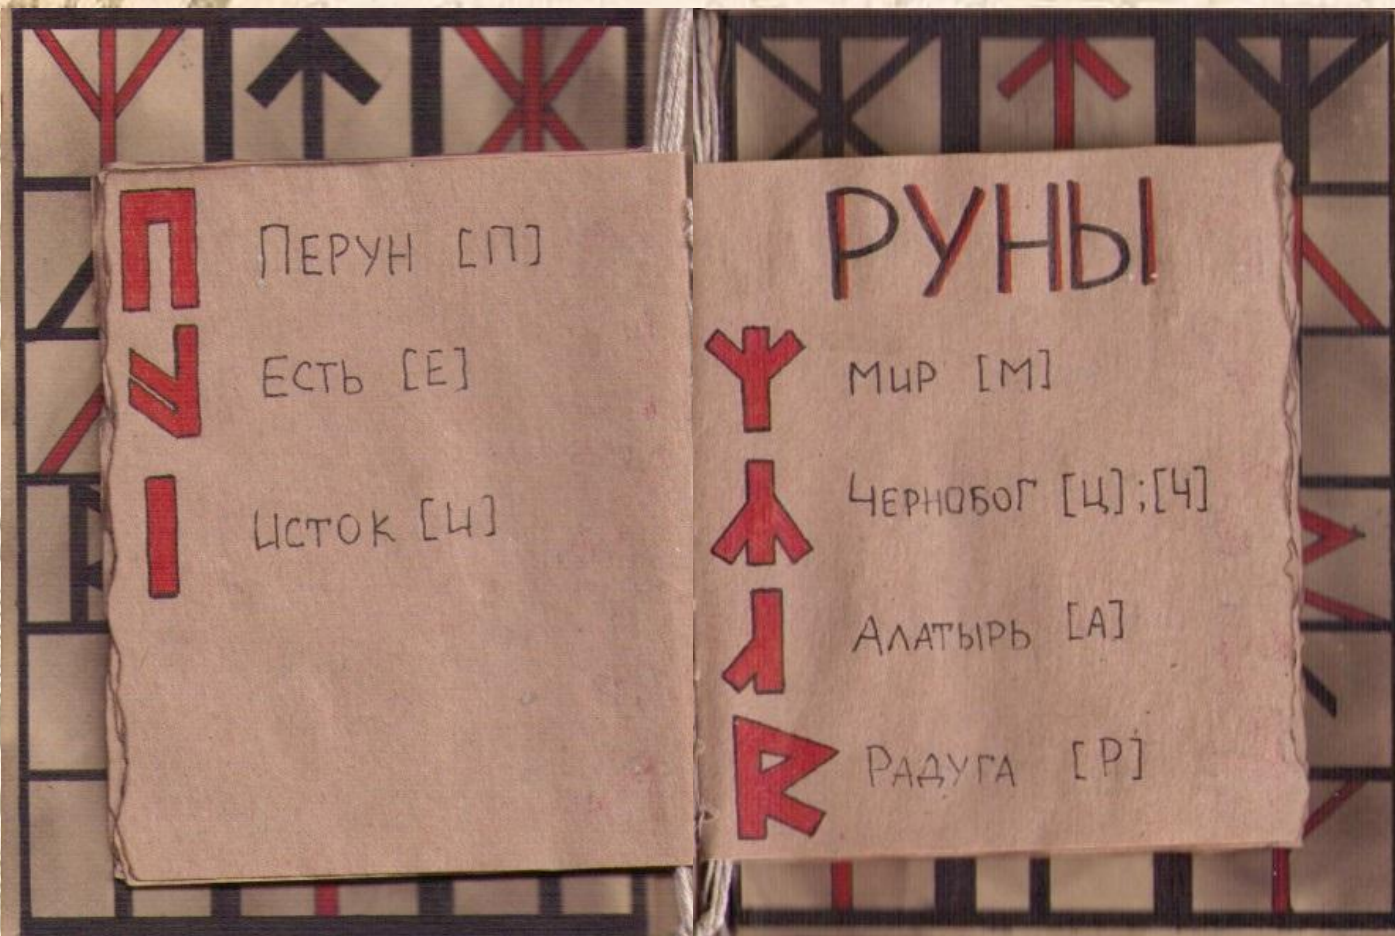 Перун [П]
Есть [Е]
Исток [И]
РУНЫ
Мир [М]
Чернобог [Ц];[Ч]
Алатырь [А]
Радуга [Р]